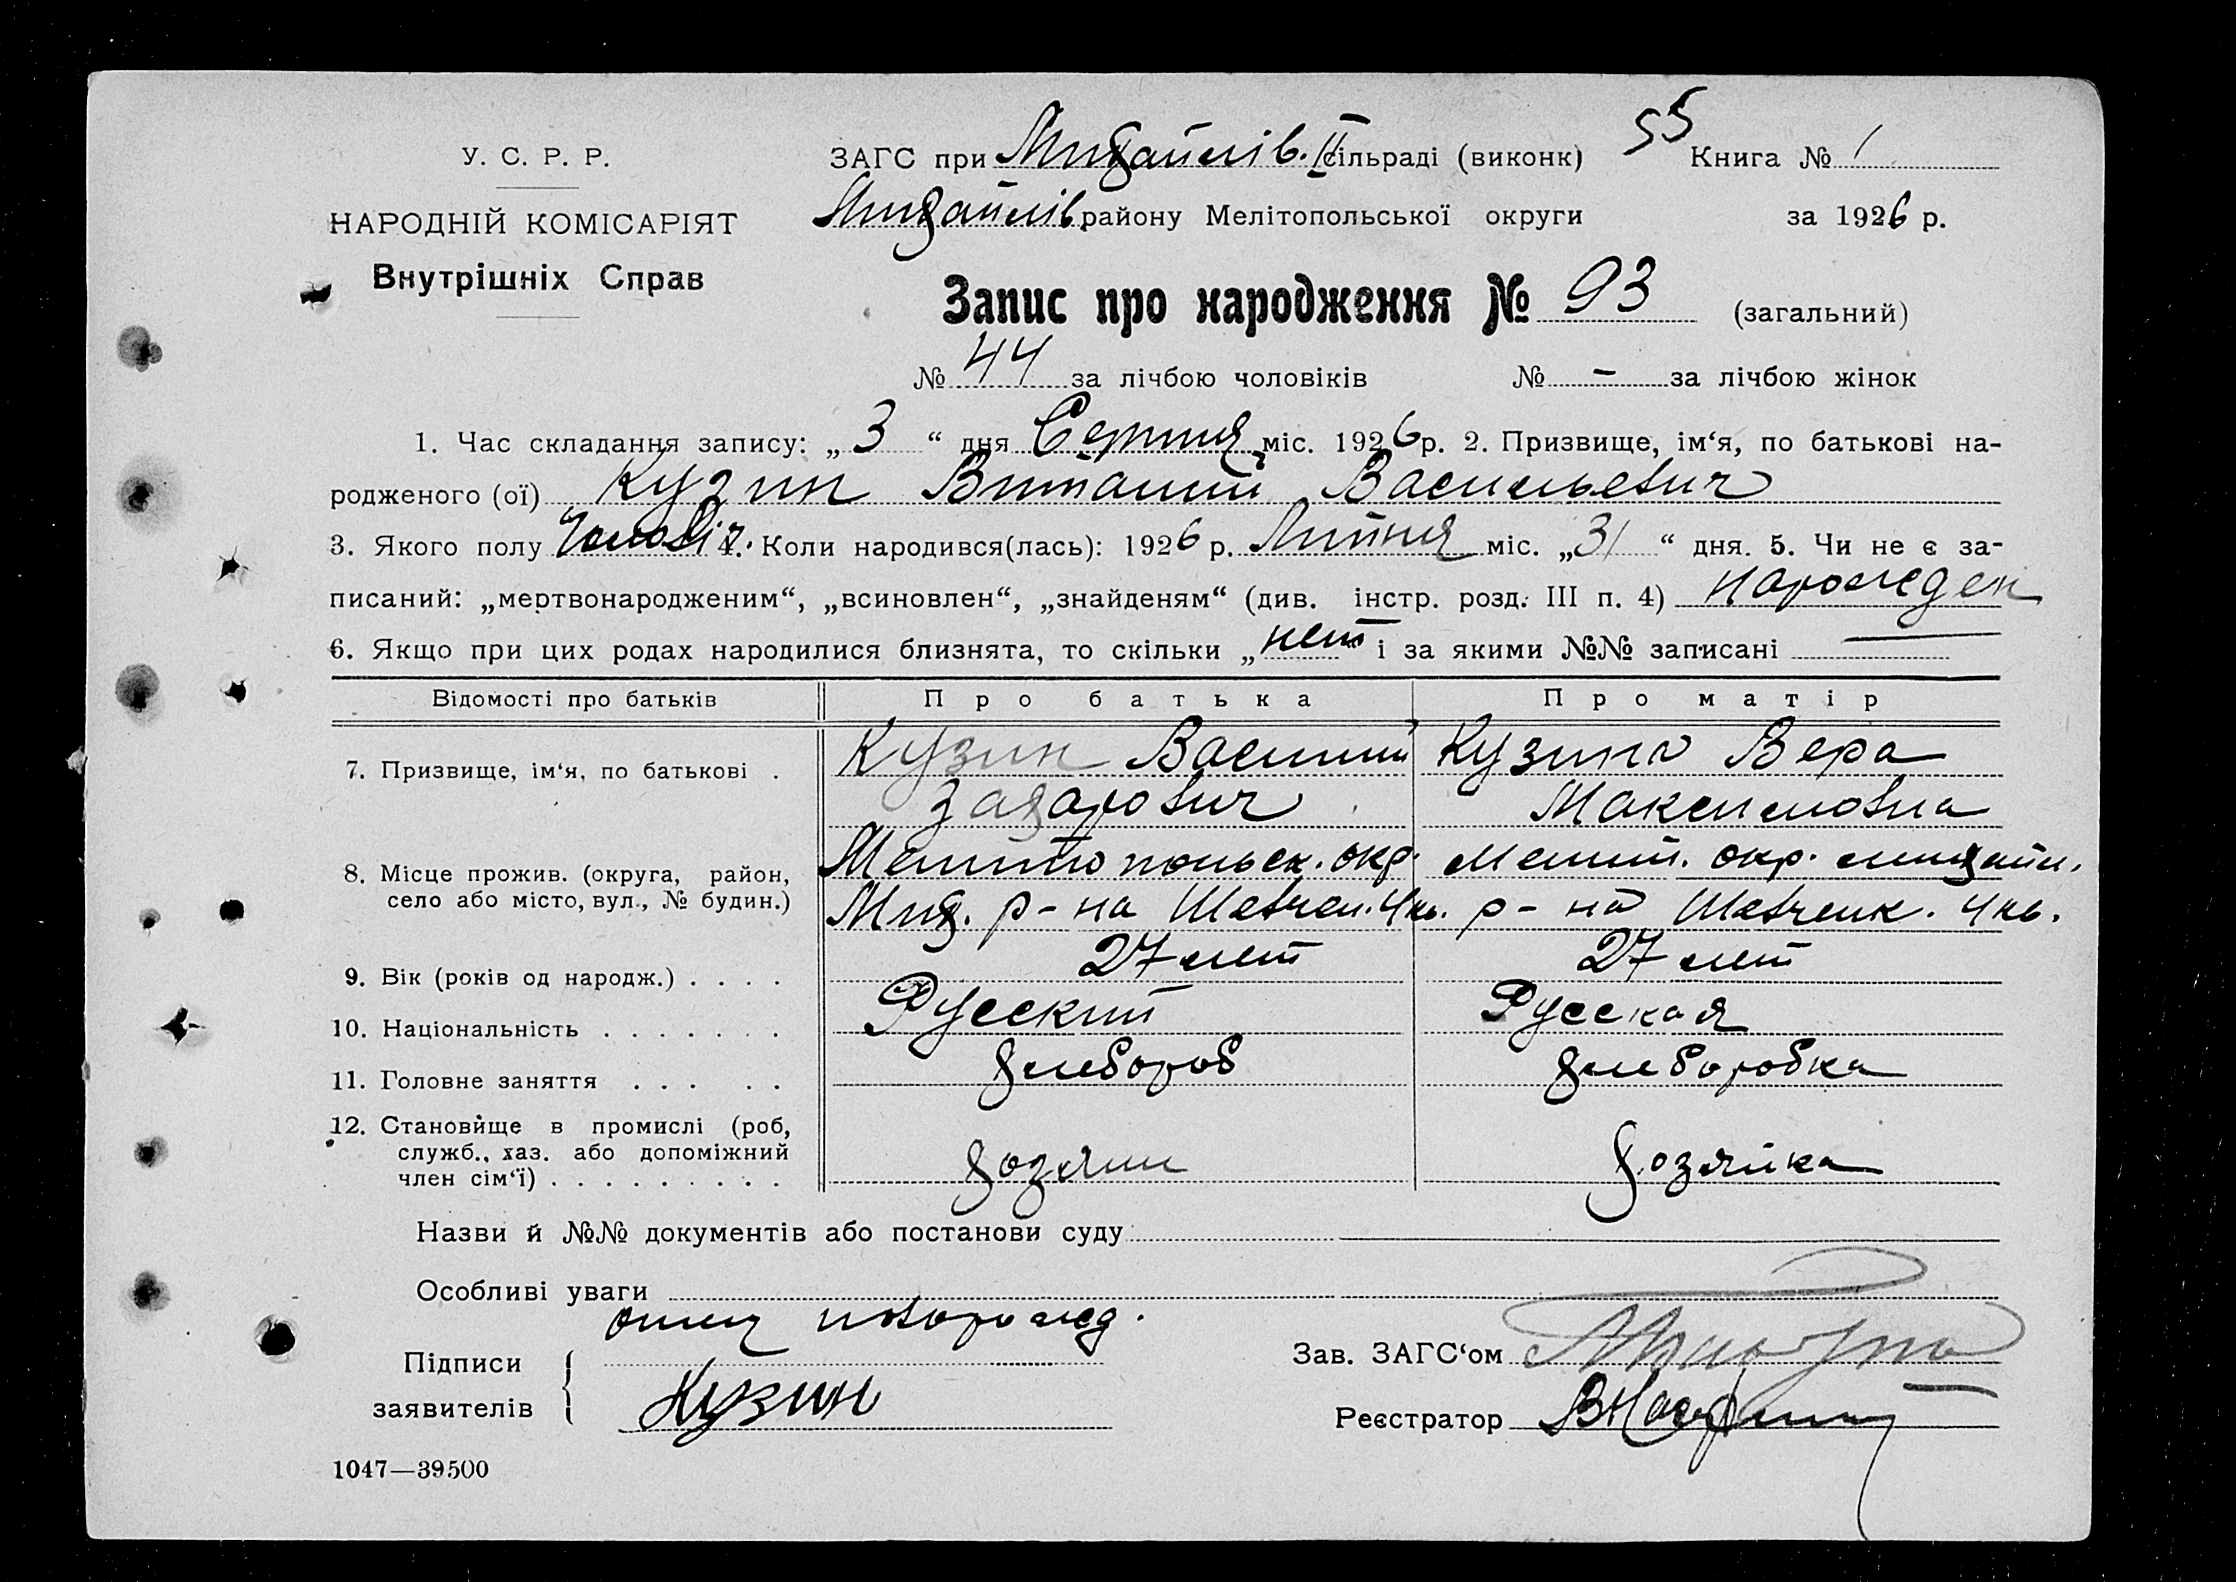 55
У. С. Р. Р.
ЗАГС при Михайлів. II сільраді (виконк) Книга № 1
НАРОДНІЙ КОМІСАРІЯТ
Михайлів. району Мелітопольської округи за 1926 р.
Внутрішніх Справ
Запис про народження № 93 (загальний)
№ 44 за лічбою чоловіків № - за лічбою жінок
1. Час складання запису: „ 3 “ дня Серпня міс. 1926 р. 2. Призвище, ім‘я, по батькові на-
родженого (ої) Кузин Виталий Васильевич
3. Якого полу Чоловіч. 4. Коли народився(лась): 1926 р. Липня міс. „31“ дня. 5. Чи не є за-
писаний: „мертвонародженим“, „всиновлен“, „знайденям“ (див. інстр. розд. III п. 4) нарожден
6. Якщо при цих родах народилися близнята, то скільки „ нет і за якими №№ записані —
Відомості про батьків Про батька Про матір
7. Призвище, ім‘я, по батькові . Кузин Василий Кузина Вера
Захарович Максимовна
8. Місце прожив. (округа, район, Мелитопольск. окр. Мелит. окр. Михайл.
село або місто, вул., № будин.) Мих. р-на Шевчен. 4 кв. р-на Шевченк. 4 кв.
9. Вік (років од народж.) . . . . 27 лет 27 лет
10. Національність . . . . . . . Русский Русская
11. Головне заняття . . . . . Хлебороб Хлеборобка
12. Становище в промислі (роб,
служб., хаз. або допоміжний
член сім‘ї) . . . . . . . . . хозяин хозяйка
Назви й №№ документів або постанови суду
Особливі уваги
отец новорожд.
Підписи
заявителів
Кузин
Зав. ЗАГС‘ом
Реєстратор
1047—39500